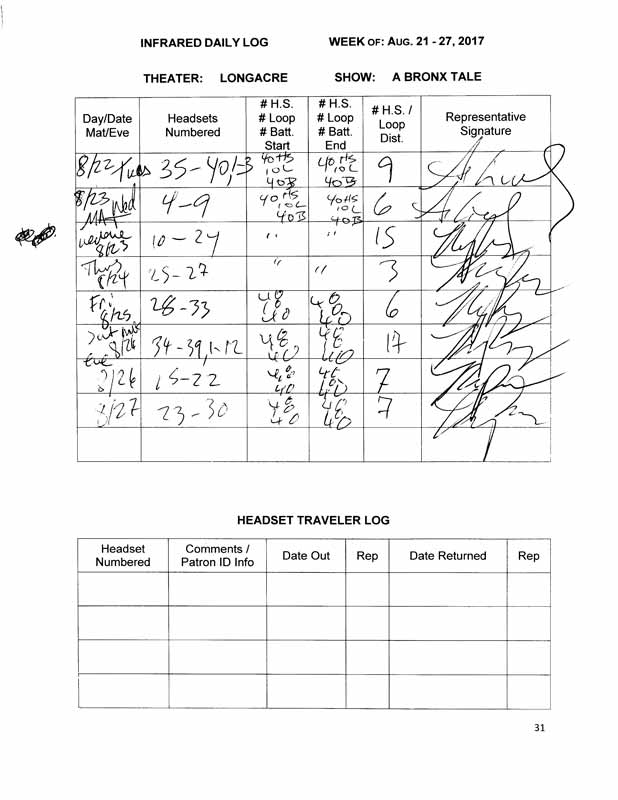 INFRARED DAILY LOG WEEK OF: AUG. 21 - 27, 2017
THEATER: LONGACRE SHOW: A BRONX TALE
Day/Date Mat/Eve Headsets Numbered # H.S. # Loop # Batt. Start # H.S. # Loop # Batt. End # H.S. / Loop Dist. Representative Signature
8/22 Tues 35-40,1-3 40HS 10L 40B 40HS 10L 40B 9
8/23 Wed MAT 4-9 40HS 10L 40B 40HS 10L 40B 6
8/23 10-24 " " 15
Thus 8/24 25-27 " " 3
Fri 8/25 28-33 40 10 40 40 10 40 6
Sat Mat 8/26 34-39,1-12 40 40 17
Eve 8/26 15-22 40 40 7
8/27 23-30 40 40 7
HEADSET TRAVELER LOG
Headset Numbered Comments / Patron ID Info Date Out Rep Date Returned Rep
31